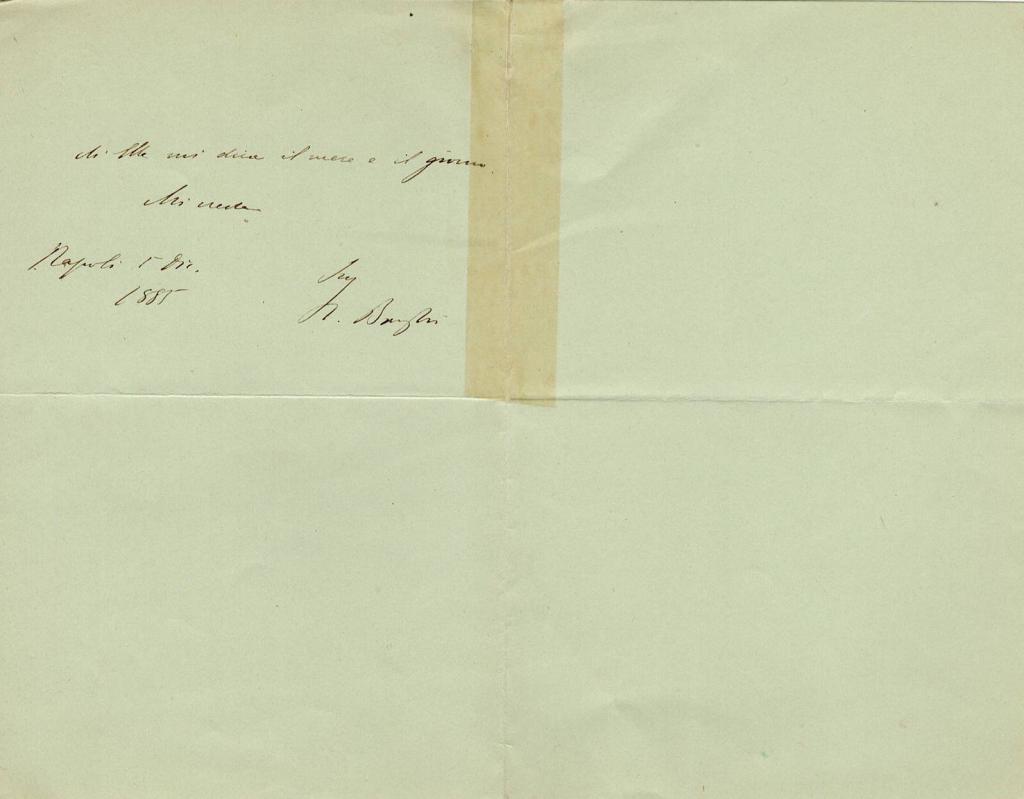 Ella mi dica il mese e il giorno.
Mi creda
Napoli 5 Dic.
1885
Suo
R. Bonghi